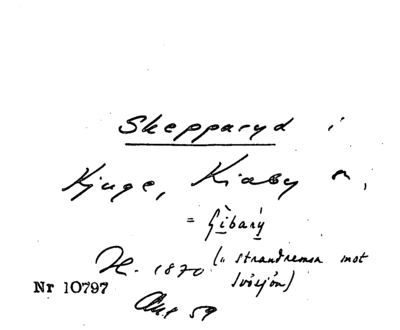 Skepparyd i
Kjuge, Kiaby sn,
= Gibarÿ
H. 1870 (= strandremsa mot
Ivösjön)
Nr 10797
Akt 59